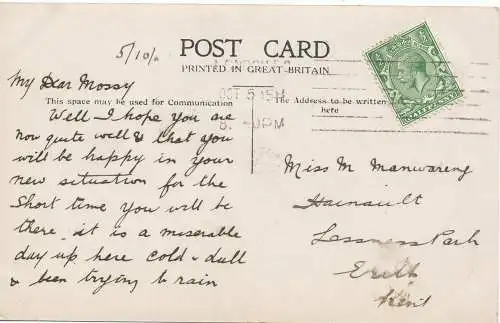 5/10/
POST CARD
PRINTED IN GREAT BRITAIN
This space may be used for Communication
The Address to be written
here
OCT 5 15H
PM
My Dear Mossy
Well I hope you are
now quite well & that you
will be happy in your
new situation for the
Short time you will be
there, it is a miserable
day up here cold & dull
& been trying to rain
Miss M Manwareng
Hainault
Lessness Park
Erith
Kent